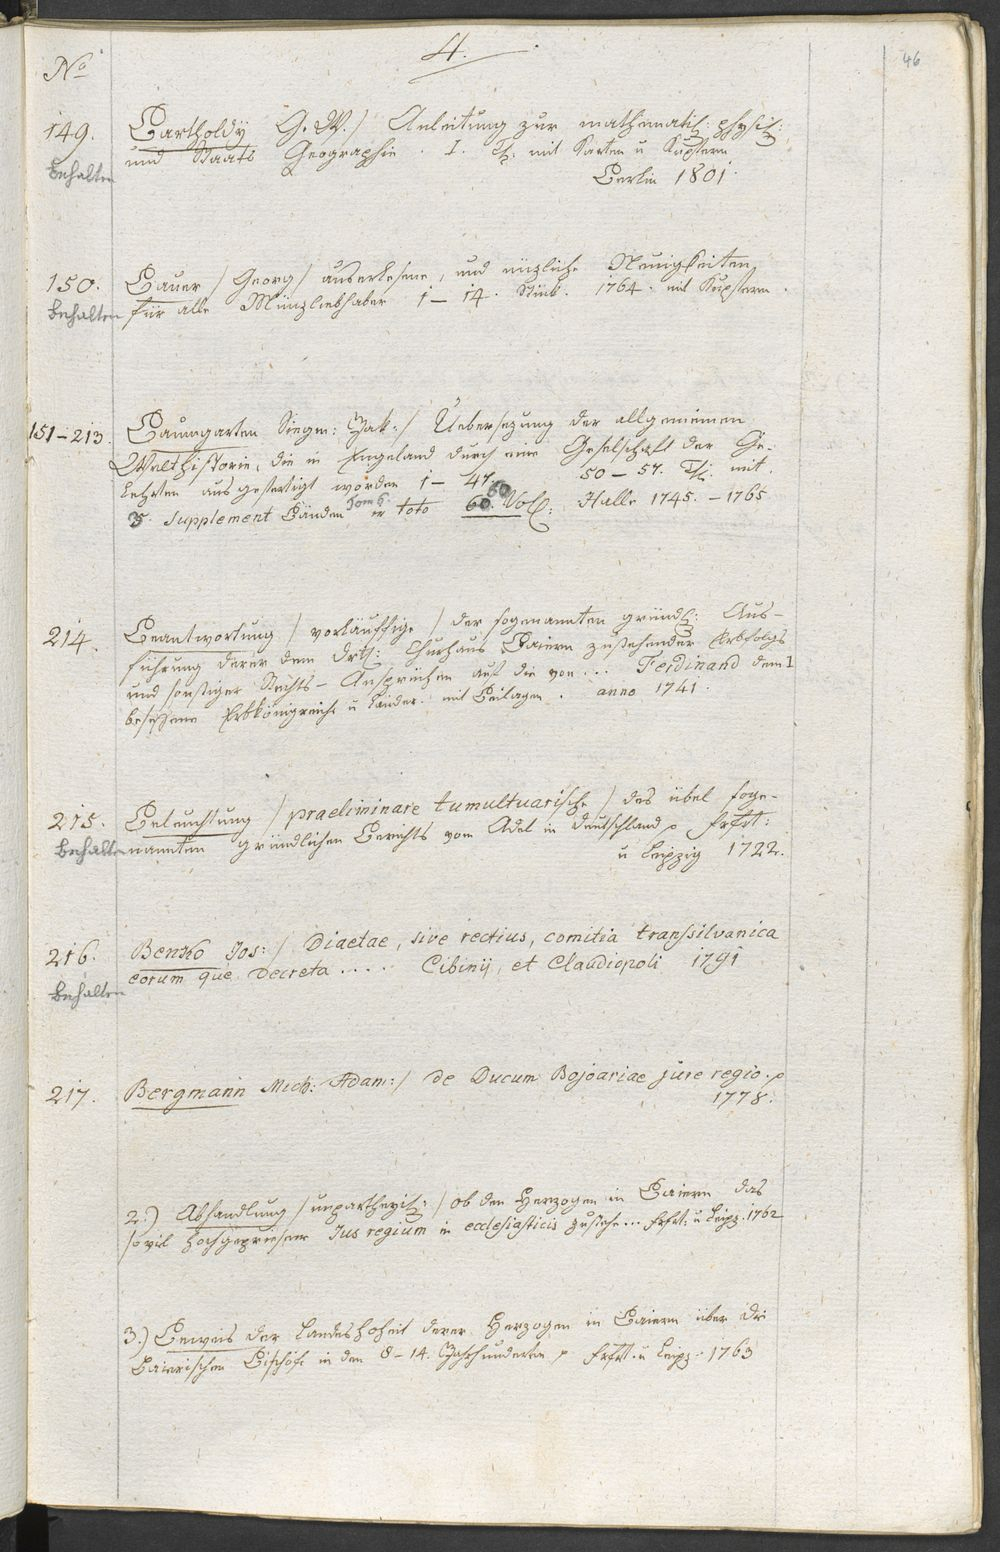 4.
46
No
149. Bartholdy G. W. / Anleitung zur mathematisch: physisch:
und Staats Geographie. I. Th. mit Karten u Kupfern
Behalten
Berlin 1801.
150. Bauer / Georg / auserlesene, und nüzliche Neuigkeiten
Behalten für alle Münzliebhaber 1 – 14. Stück. 1764. mit Kupfern.
151–213. Baumgarten Siegm: Jak: / Uebersezung der allgemeinen
Welthistorie, die in Engeland durch eine Geselschaft der Ge-
lehrten ausgefertigt worden 1 – 47. 50 – 57. Th. mit
Supplement Bänden Tom 6. toto 60 Voll: Halle 1745. – 1765
214. Beantwortung / vorläuffige / der sogenannten gründl: Aus-
führung derer dem Churhaus Baiern zustehender Erbfolgs
und sonstiger Rechts – Ansprüchen auf die von ... Ferdinand dem I
besessene Erbkönigreiche u Länder. mit Beilagen. anno 1741.
215. Beleuchtung / praeliminare tumultuarische / des übel soge-
Behalten nannten gründlichen Berichts vom Adel in Deutschland p Frfrt:
u Leipzig 1722.
216. Benko Jos: / Diaetae, sive rectius, comitia transsilvanica
eorum que Decreta ..... Cibinij, et Claudiopoli 1791
Behalten
217. Bergmann Mich: Adam: / de Ducum Bojoariae jure regio. p
1778.
2.) Abhandlung / unpartheyisch: / ob den Herzogen in Baiern das
so viel hochgepriesene Jus regium in ecclesiasticis zustehe ... Frfrt. u Leipz. 1762
3.) Beweis der Landeshoheit derer Herzogen in Baiern über die
Baierischen Bischöfe in den 8–14. Jahrhunderten p Frfrt. u Leipz. 1763